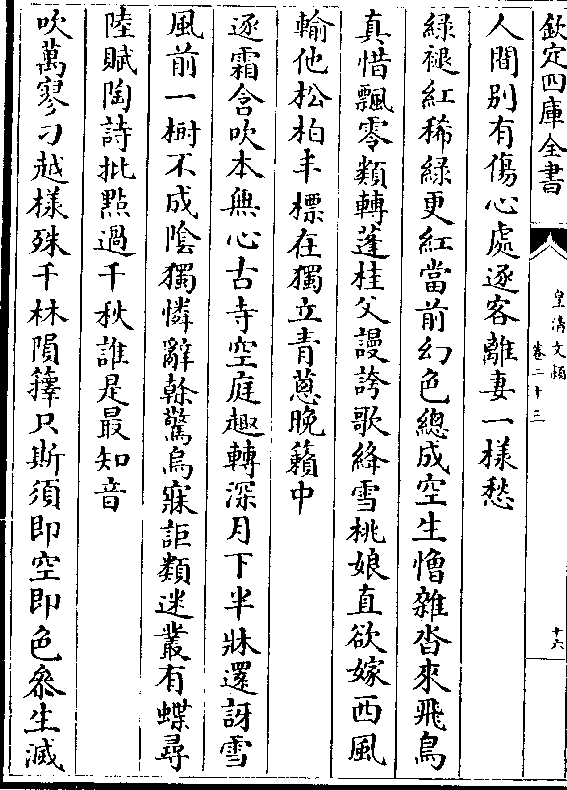 欽定四庫全書
皇清文穎
卷二十三
十六
人間别有傷心處逐客離妻一様愁
綠褪紅稀綠更紅當前幻色總成空生憎雜沓來飛鳥
真惜飄零類轉蓬桂父謾誇歌絳雪桃娘直欲嫁西風
輸他松柏丰標在獨立青蔥晚籟中
逐霜含吹本無心古寺空庭趣轉深月下半牀還訝雪
風前一樹不成陰獨憐辭榦驚烏寐詎類迷叢有蝶尋
陸賦陶詩批點過千秋誰是最知音
吹萬寥刁越様殊千林隕籜只斯須即空即色叅生滅